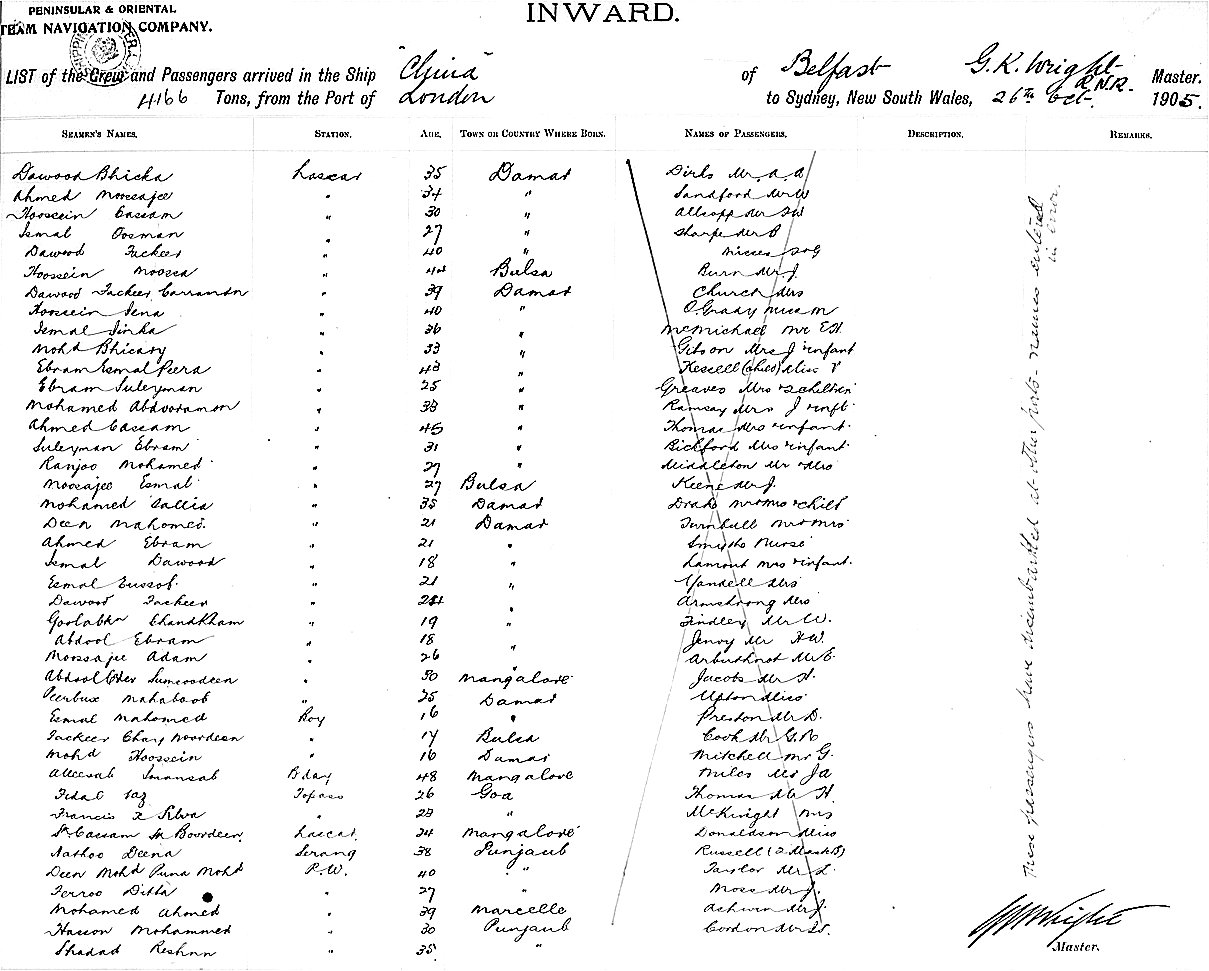 PENINSULAR & ORIENTAL
TEAM NAVIGATION COMPANY.
INWARD.
LIST of the Crew and Passengers arrived in the Ship "China" of Belfast G.K. Wright R.N.R. Master.
4166 Tons, from the Port of London to Sydney, New South Wales, 26th Oct. 1905.
SEAMEN'S NAMES. STATION. AGE. TOWN OR COUNTRY WHERE BORN. NAMES OF PASSENGERS. DESCRIPTION. REMARKS.
Dawood Bhicka Lascar 35 Daman Dirls Mr A.A
Ahmed Moosajee " 34 " Sandford Mr W
Hoossein Cassam " 30 " Allsopp Mr
Ismal Oosman " 27 " Sharpe Mr
Dawood Fackeer " 40 " Misses
Hoossein Moosa " 44 Bulsa Burn Mr J.
Dawood Fackeer " 39 Daman Church Mrs
Hoossein " 40 " O'Grady Miss M
Ismal " 36 " McMichael Mr
Mohd " 33 " Gibson Mrs J infant
Ebram Esmal Peera " 43 " Kessell (child) Miss V
Ebram Suleyman " 25 " Greaves Mrs 2 children
Mohamed Abdooramon " 38 " Ramsay Mrs J inft
Ahmed Cassam " 45 " Thomas Mrs infant
Suleyman Ebram " 31 " Bickford Mrs infant
Ranjoo Mohamed " 27 " Middleton Mr Mrs
Moosajee Esmal " 27 Bulsa Keene Mr J.
Mohamed Sallia " 35 Daman Drake Mr Mrs child
Deen Mahomed " 21 Daman Turnbull Mr Mrs
Ahmed Ebram " 21 " Smythe Nurse
Ismal Dawood " 18 " Lamont Mrs infant
Esmal Eussof " 21 " Yandell Mrs
Dawood Fackeer " " Armstrong Mrs
Goolabkn Chandkham " 19 " Findley Mr W.
Abdool Ebram " 18 " Mr H.W.
Moosajee Adam " 26 " Arbuthnot Mr E.
Abdool " 30 Mangalore Jacobs Mr
Peerbux Mahaboob " 25 Daman Upton Miss
Esmal Mahomed Boy 16 " Preston Mr D.
Fackeer Noordeen " 17 Bulsa Cook Mr G.
Mohd Hoossein " 16 Daman Mitchell Mr G.
Imamsab 48 Mangalore Miles Mr
Topass 26 Goa Thomas Mr H.
Francis Silva " 23 " McKnight Mrs
Cassam Lascar 24 Mangalore Donaldson Miss
Nathoo Deena Serang 38 Punjaub Russell (2 Masters)
Deen Mohd Puna Mohd P.W. 40 " Taylor Mr L.
Ferroo Ditta " 27 " Moss Mr J.
Mohamed Ahmed " 39 Marcelle Ashwin Mr J.
Hasson Mohammed " 30 Punjaub Gordon Mr
Shadad " 35 "
These passengers have disembarked at other ports - names entered in error.
G.K. Wright
Master.